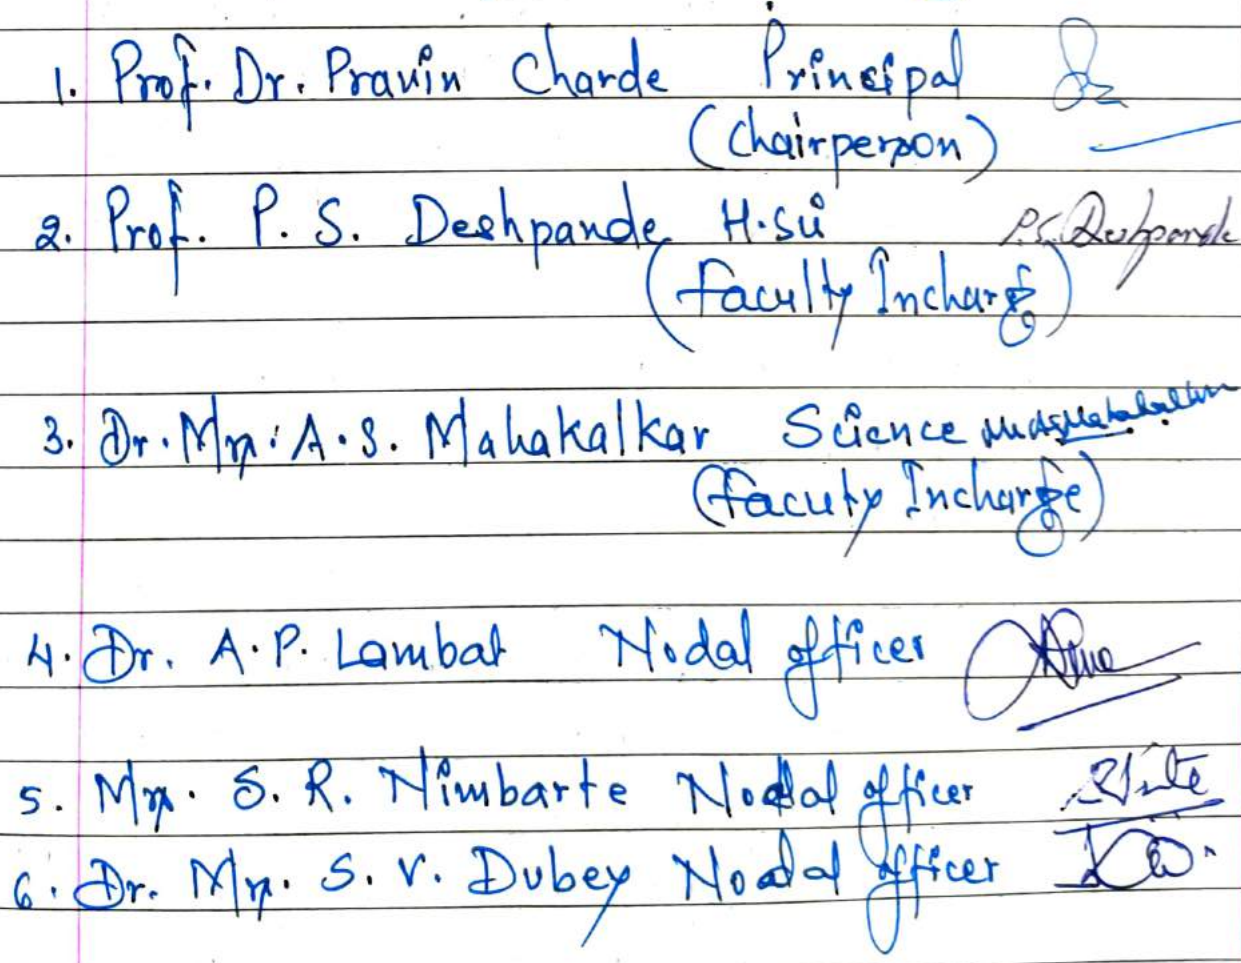 1. Prof. Dr. Pravin Charde Principal
(Chairperson)
2. Prof. P. S. Deshpande H.Sci P.S. Deshpande
(Faculty Incharge)
3. Dr. Mrs. A. S. Mahakalkar Science
(facuty Incharge)
4. Dr. A. P. Lambat Nodal officer
5. Mrs. S. R. Nimbarte Nodal officer
6. Dr. Mrs. S. V. Dubey Nodal officer